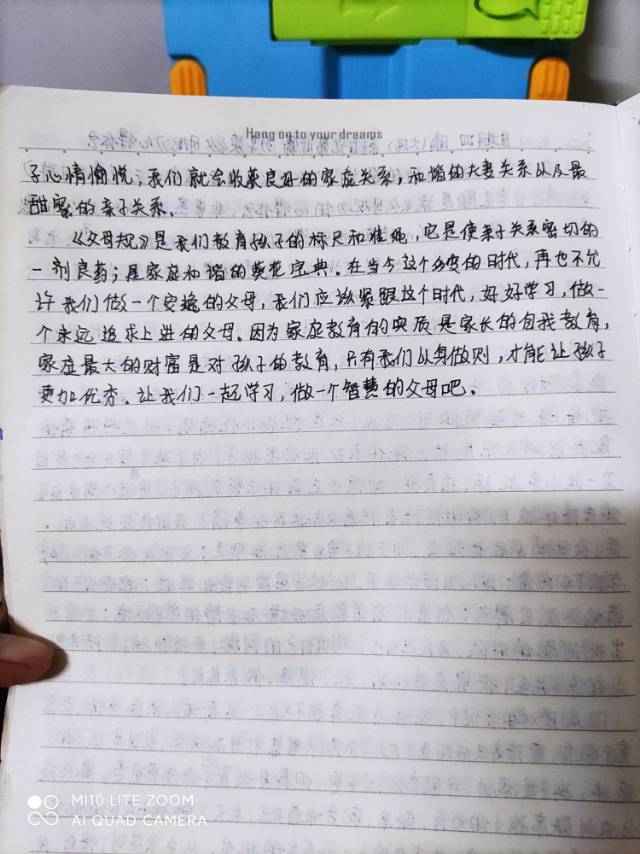 Hang on to your dreams
子心情愉悦，我们就会收获良好的家庭关系，和谐的夫妻关系以及最
甜蜜的亲子关系。
《父母规》是我们教育孩子的标尺和准绳，它是使亲子关系密切的
一剂良药；是家庭和谐的葵花宝典。在当今这个多变的时代，再也不允
许我们做一个安逸的父母，我们应该紧跟这个时代，好好学习，做一
个永远追求上进的父母。因为家庭教育的实质是家长的自我教育，
家庭最大的财富是对孩子的教育，只有我们以身做则，才能让孩子
更加优秀。让我们一起学习，做一个智慧的父母吧。
MI 10 LITE ZOOM
AI QUAD CAMERA